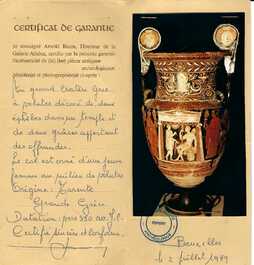 CERTIFICAT DE GARANTIE
Le soussigné Arnold Baers, Directeur de la
Galerie certifie par la présente garantir
l'authenticité de pièces antiques
archéologiques
photographiées ci-après :
Un grand cratère Grec
à volutes décoré de deux
éphèbes dans un temple et
de deux grâces apportant
des offrandes.
Le col est orné d'une jeune
femme au milieu de volutes
Origine: Tarente
Grande Grèce
Datation: 330 av. J.C.
Certifié sincère et conforme
Bruxelles
le 2 juillet 1989